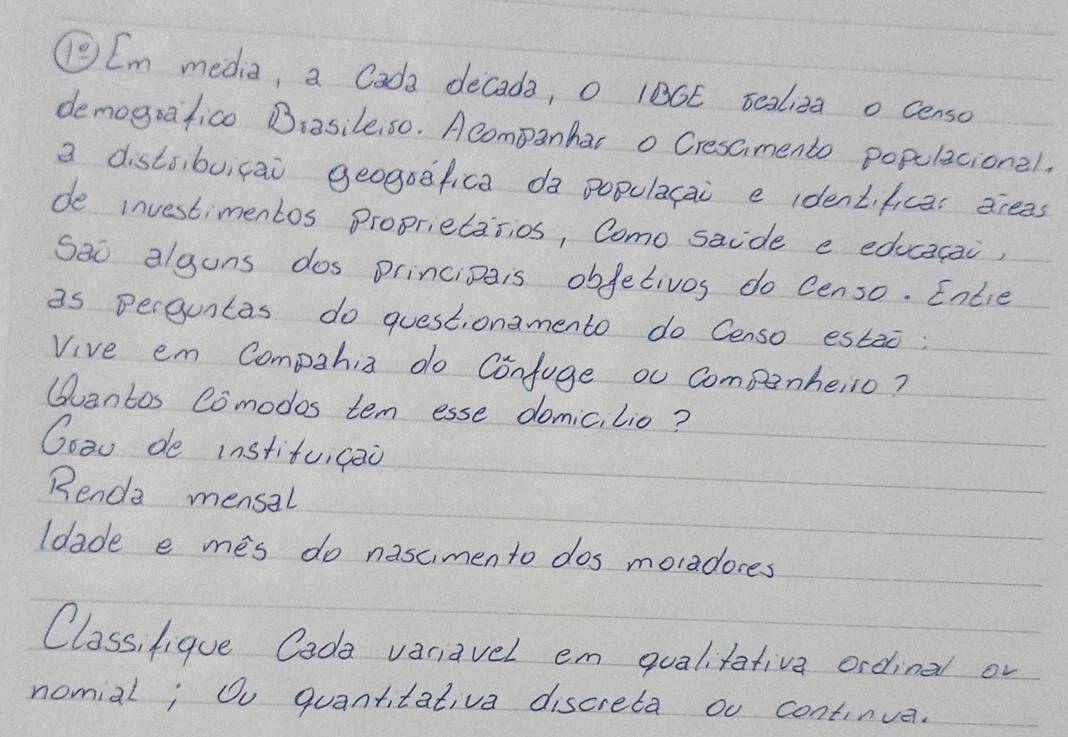 1º Em media, a cada década, o IBGE realiza o censo
demográfico Brasileiro. Acompanhar o Crescimento populacional,
a distribuição geográfica da população e identificar áreas
de investimentos proprietários, Como saúde e educação,
São alguns dos principais objetivos do censo. Entre
as perguntas do questionamento do Censo estão:
Vive em Compahia do Cônjuge ou Companheiro?
Quantos Cômodos tem esse domicilio?
Grau de instituição
Renda mensal
Idade e mês do nascimento dos moradores
Classifique Cada variavel em qualitativa ordinal ou
nomial; Ou quantitativa discreta ou continua.